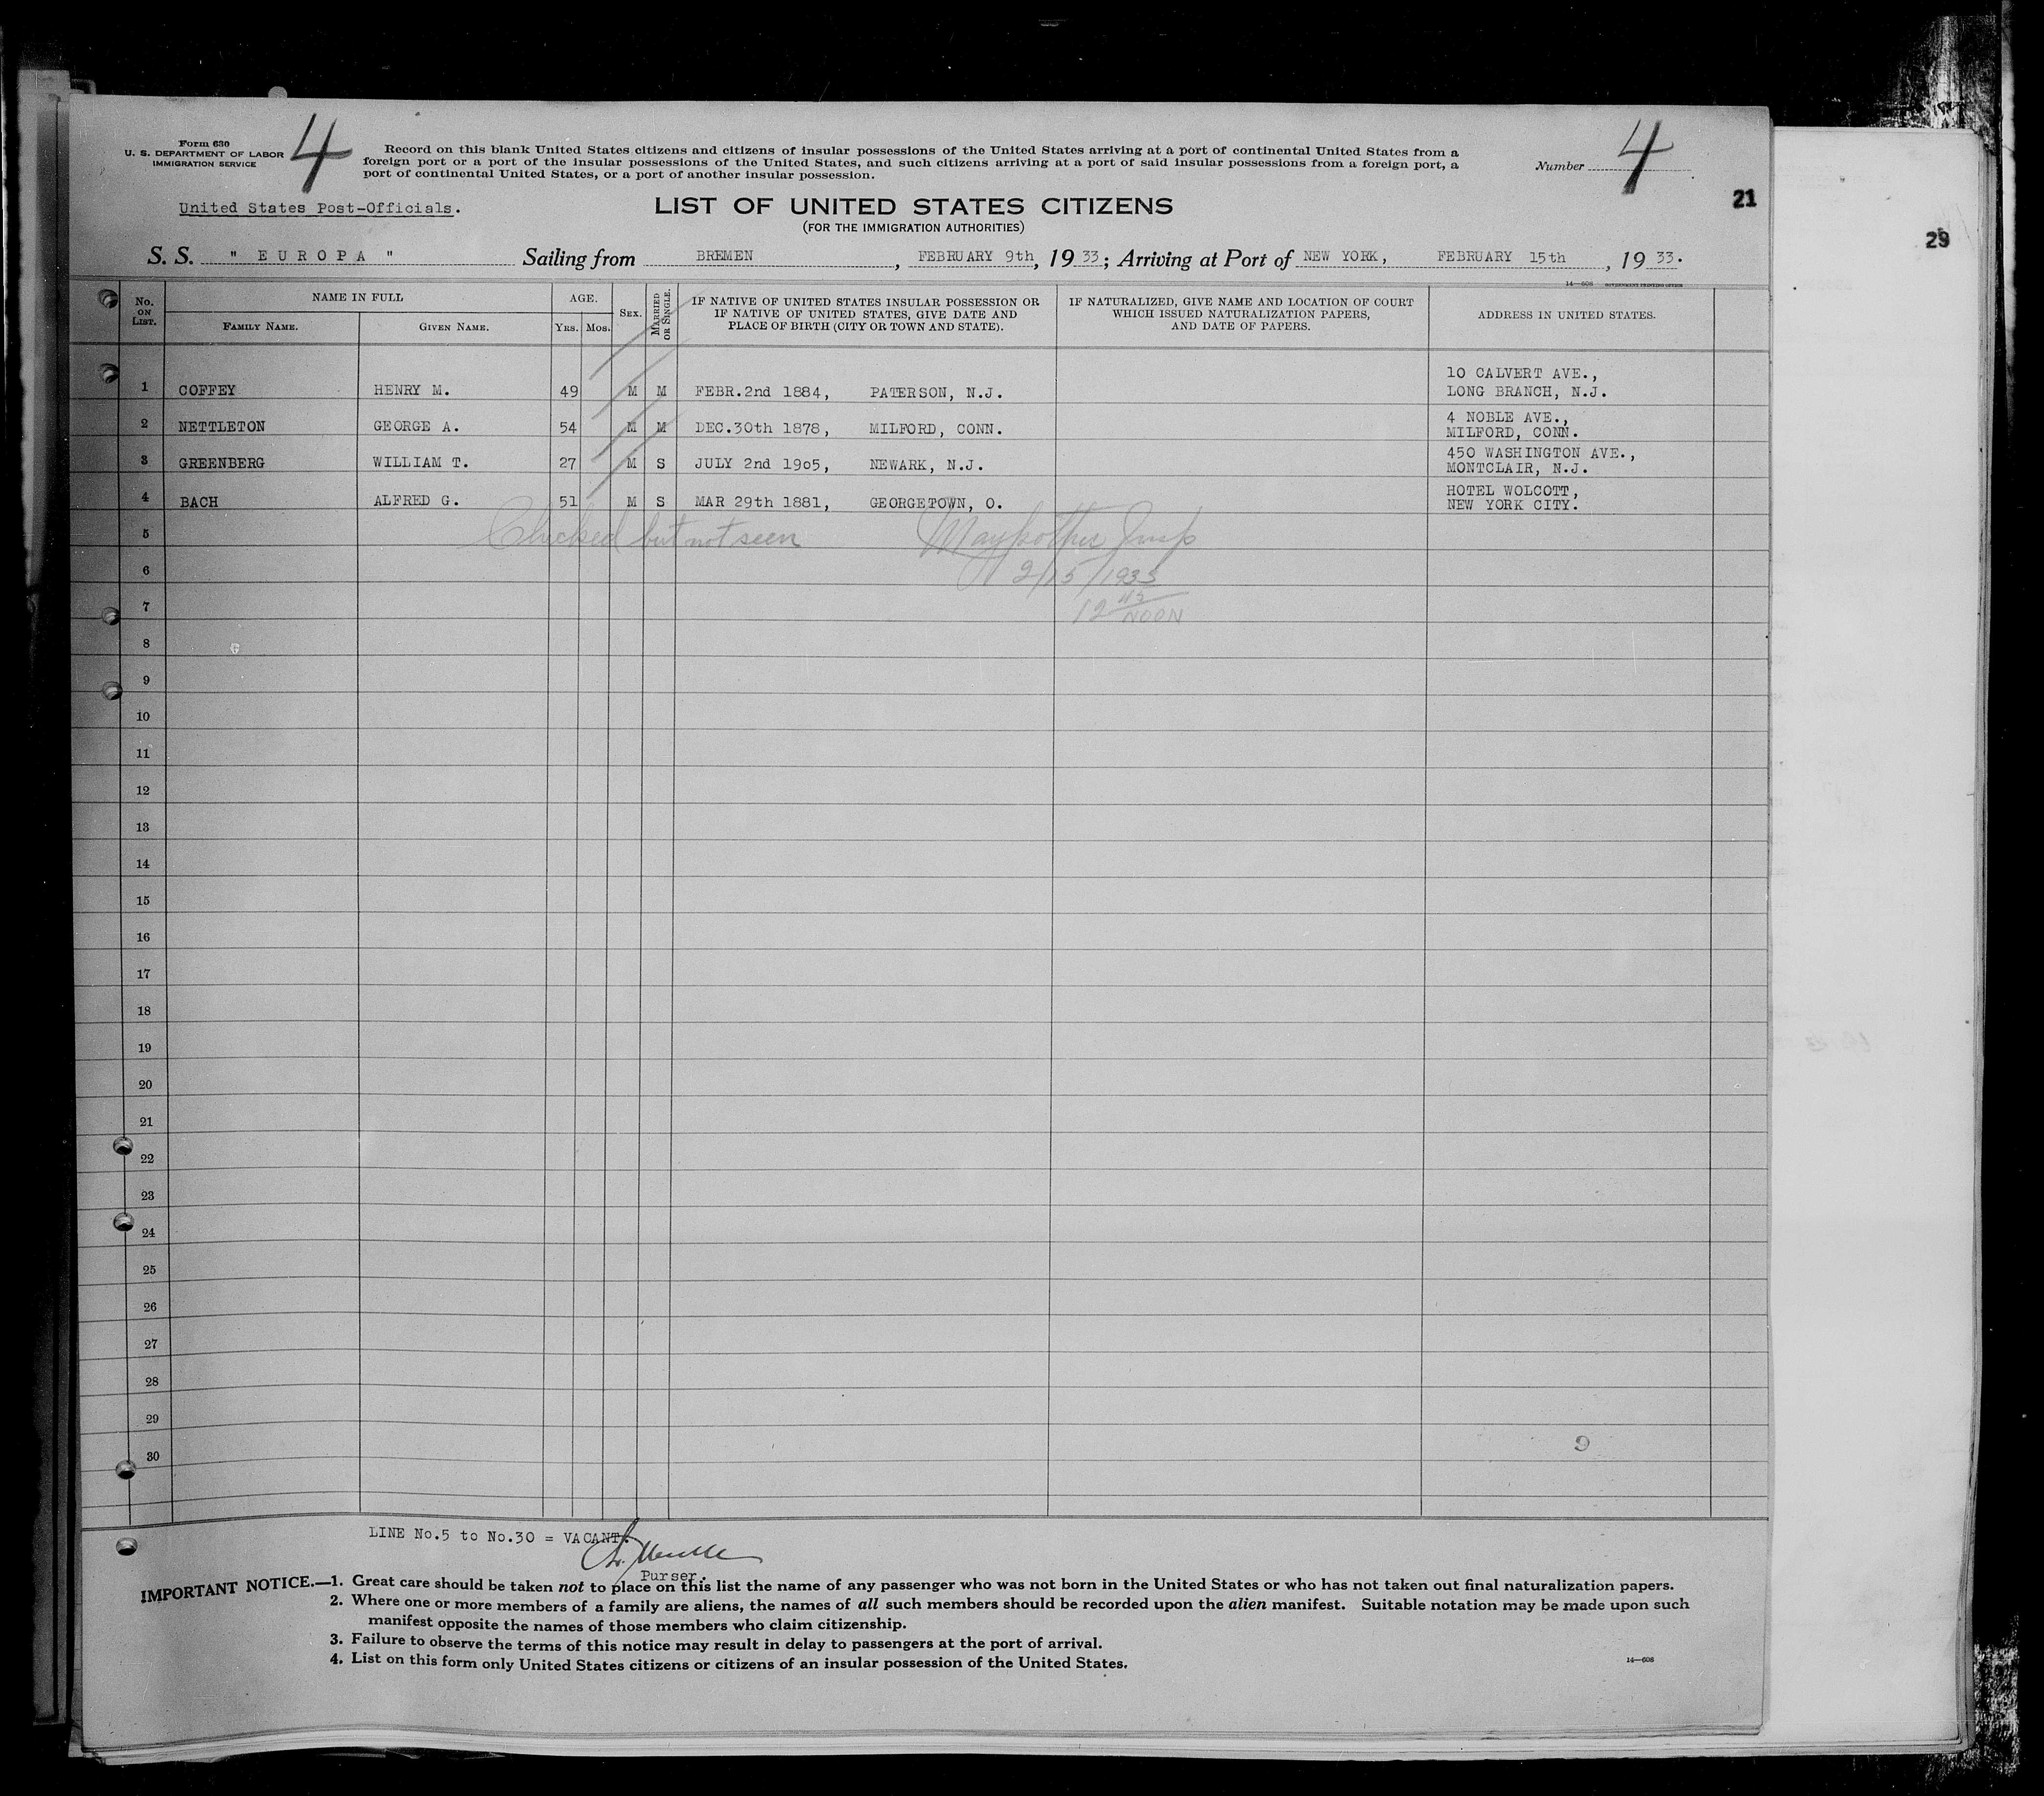 Form 630
U. S. DEPARTMENT OF LABOR
IMMIGRATION SERVICE
4
Record on this blank United States citizens and citizens of insular possessions of the United States arriving at a port of continental United States from a
foreign port or a port of the insular possessions of the United States, and such citizens arriving at a port of said insular possessions from a foreign port, a
port of continental United States, or a port of another insular possession.
Number 4
21
29
United States Post-Officials.
LIST OF UNITED STATES CITIZENS
(FOR THE IMMIGRATION AUTHORITIES)
S. S. " EUROPA " Sailing from BREMEN, FEBRUARY 9th, 1933; Arriving at Port of NEW YORK, FEBRUARY 15th, 1933.
14—608 GOVERNMENT PRINTING OFFICE
No. ON LIST. NAME IN FULL FAMILY NAME. GIVEN NAME. AGE. YRS. MOS. SEX. MARRIED OR SINGLE. IF NATIVE OF UNITED STATES INSULAR POSSESSION OR IF NATIVE OF UNITED STATES, GIVE DATE AND PLACE OF BIRTH (CITY OR TOWN AND STATE). IF NATURALIZED, GIVE NAME AND LOCATION OF COURT WHICH ISSUED NATURALIZATION PAPERS, AND DATE OF PAPERS. ADDRESS IN UNITED STATES.
1 COFFEY HENRY M. 49 M M FEBR.2nd 1884, PATERSON, N.J. 10 CALVERT AVE., LONG BRANCH, N.J.
2 NETTLETON GEORGE A. 54 M M DEC.30th 1878, MILFORD, CONN. 4 NOBLE AVE., MILFORD, CONN.
3 GREENBERG WILLIAM T. 27 M S JULY 2nd 1905, NEWARK, N.J. 450 WASHINGTON AVE., MONTCLAIR, N.J.
4 BACH ALFRED G. 51 M S MAR 29th 1881, GEORGETOWN, O. HOTEL WOLCOTT, NEW YORK CITY.
5 Checked but not seen Insp
6 2/15/1933
7 12 NOON
8
9
10
11
12
13
14
15
16
17
18
19
20
21
22
23
24
25
26
27
28
29
30
LINE No.5 to No.30 = VACANT.
Purser.
IMPORTANT NOTICE.—1. Great care should be taken not to place on this list the name of any passenger who was not born in the United States or who has not taken out final naturalization papers.
2. Where one or more members of a family are aliens, the names of all such members should be recorded upon the alien manifest. Suitable notation may be made upon such
manifest opposite the names of those members who claim citizenship.
3. Failure to observe the terms of this notice may result in delay to passengers at the port of arrival.
4. List on this form only United States citizens or citizens of an insular possession of the United States.
14—608